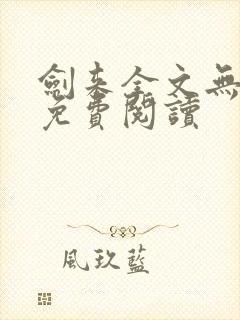 劍來全文無
免費閱讀
風玖藍